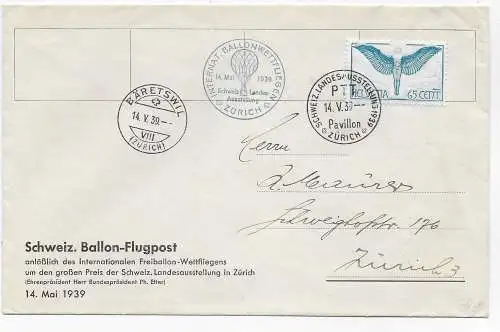 INTERNAT. BALLONWETTFLIEGEN
14. Mai 1939
Schweiz. Landes-
Ausstellung
ZÜRICH
HELVETIA 65 CENT.
BÄRETSWIL
14. V. 39.--
VIII
(ZÜRICH)
SCHWEIZ. LANDESAUSSTELLUNG 1939
PTT
14. V. 39--
Pavillon
ZÜRICH
Herrn
A. Maurer
176
Zürich 3
Schweiz. Ballon-Flugpost
anläßlich des internationalen Freiballon-Wettfliegens
um den großen Preis der Schweiz. Landesausstellung in Zürich
(Ehrenpräsident Herr Bundespräsident Ph. Etter)
14. Mai 1939